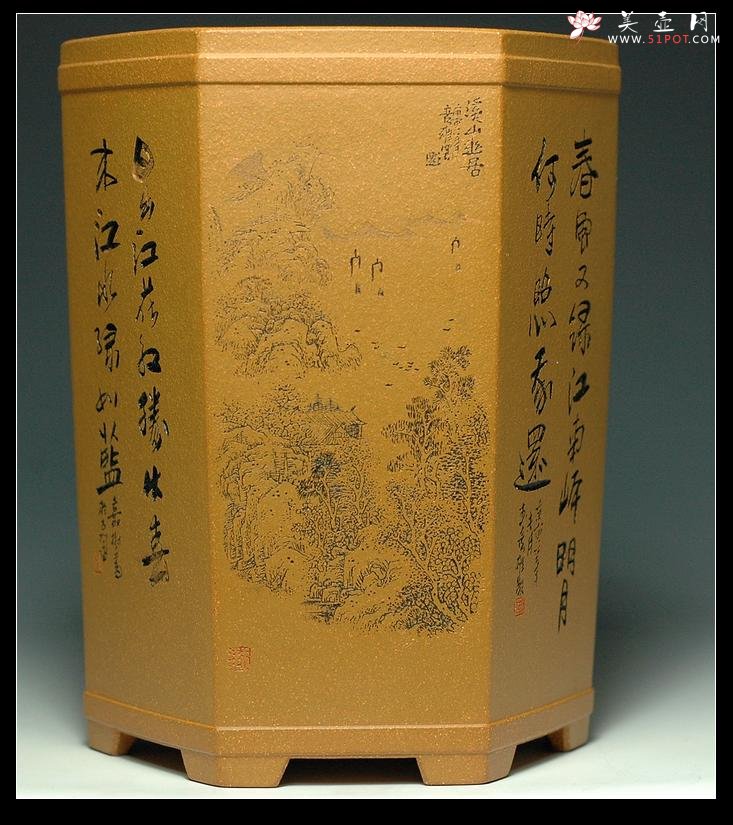 美壶网
WWW.51POT.COM
溪山幽居
春風又绿江南岸明月
何時照我還
日出江花红勝火春
来江水绿如藍